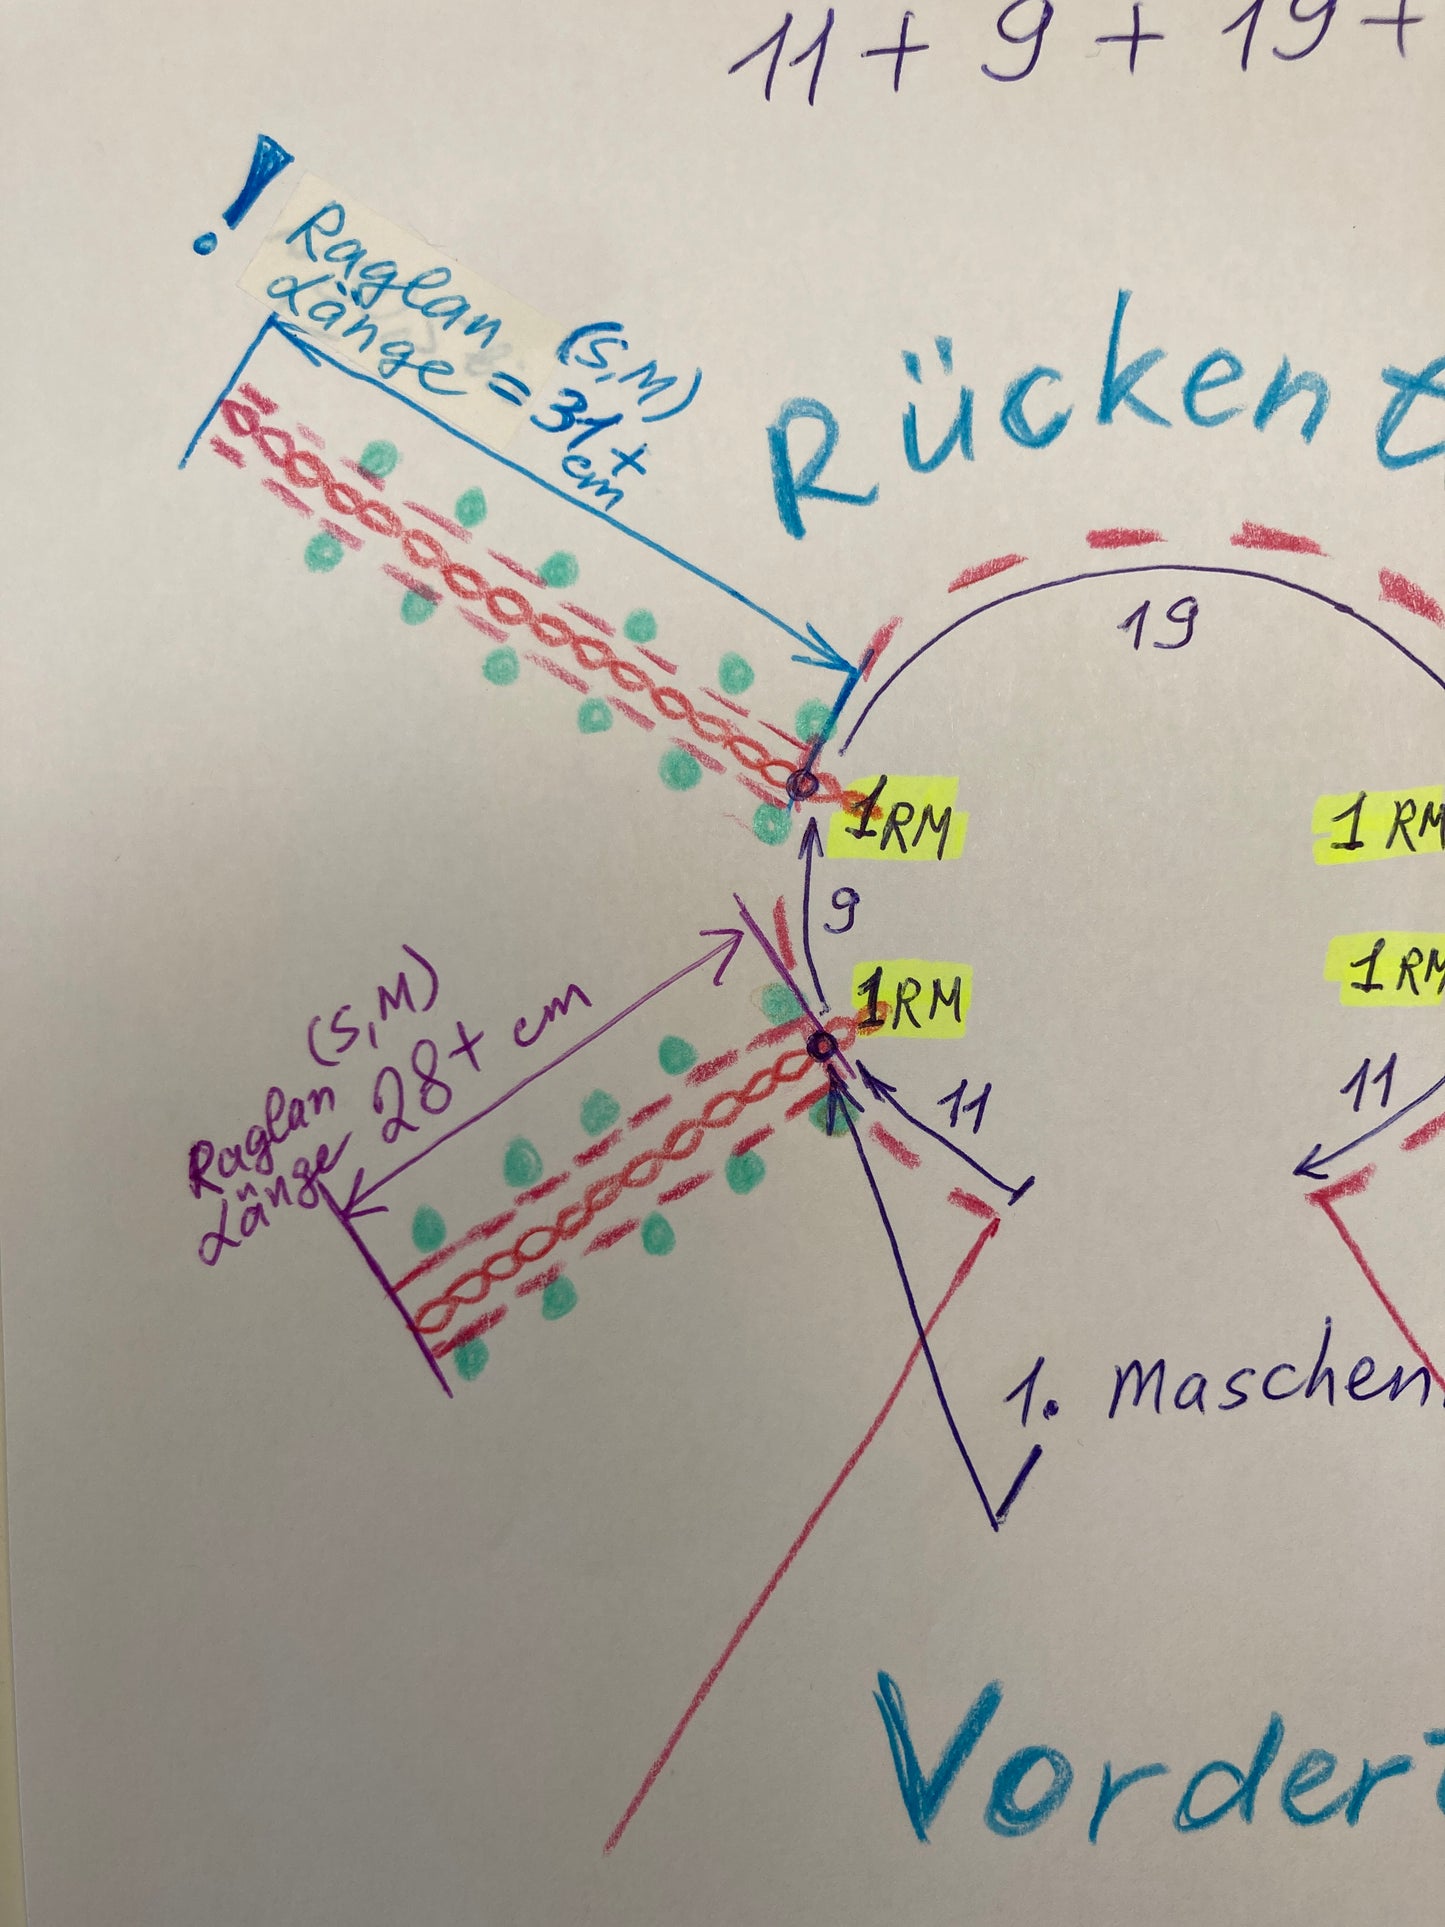 11 + 9 + 19 +
!
Raglan
Länge = 31+
(S,M)
cm
Rücken
19
1RM
1 RM
9
1RM
1RM
(S,M)
Raglan
Länge 28+ cm
11
11
1. Maschen
Vorder